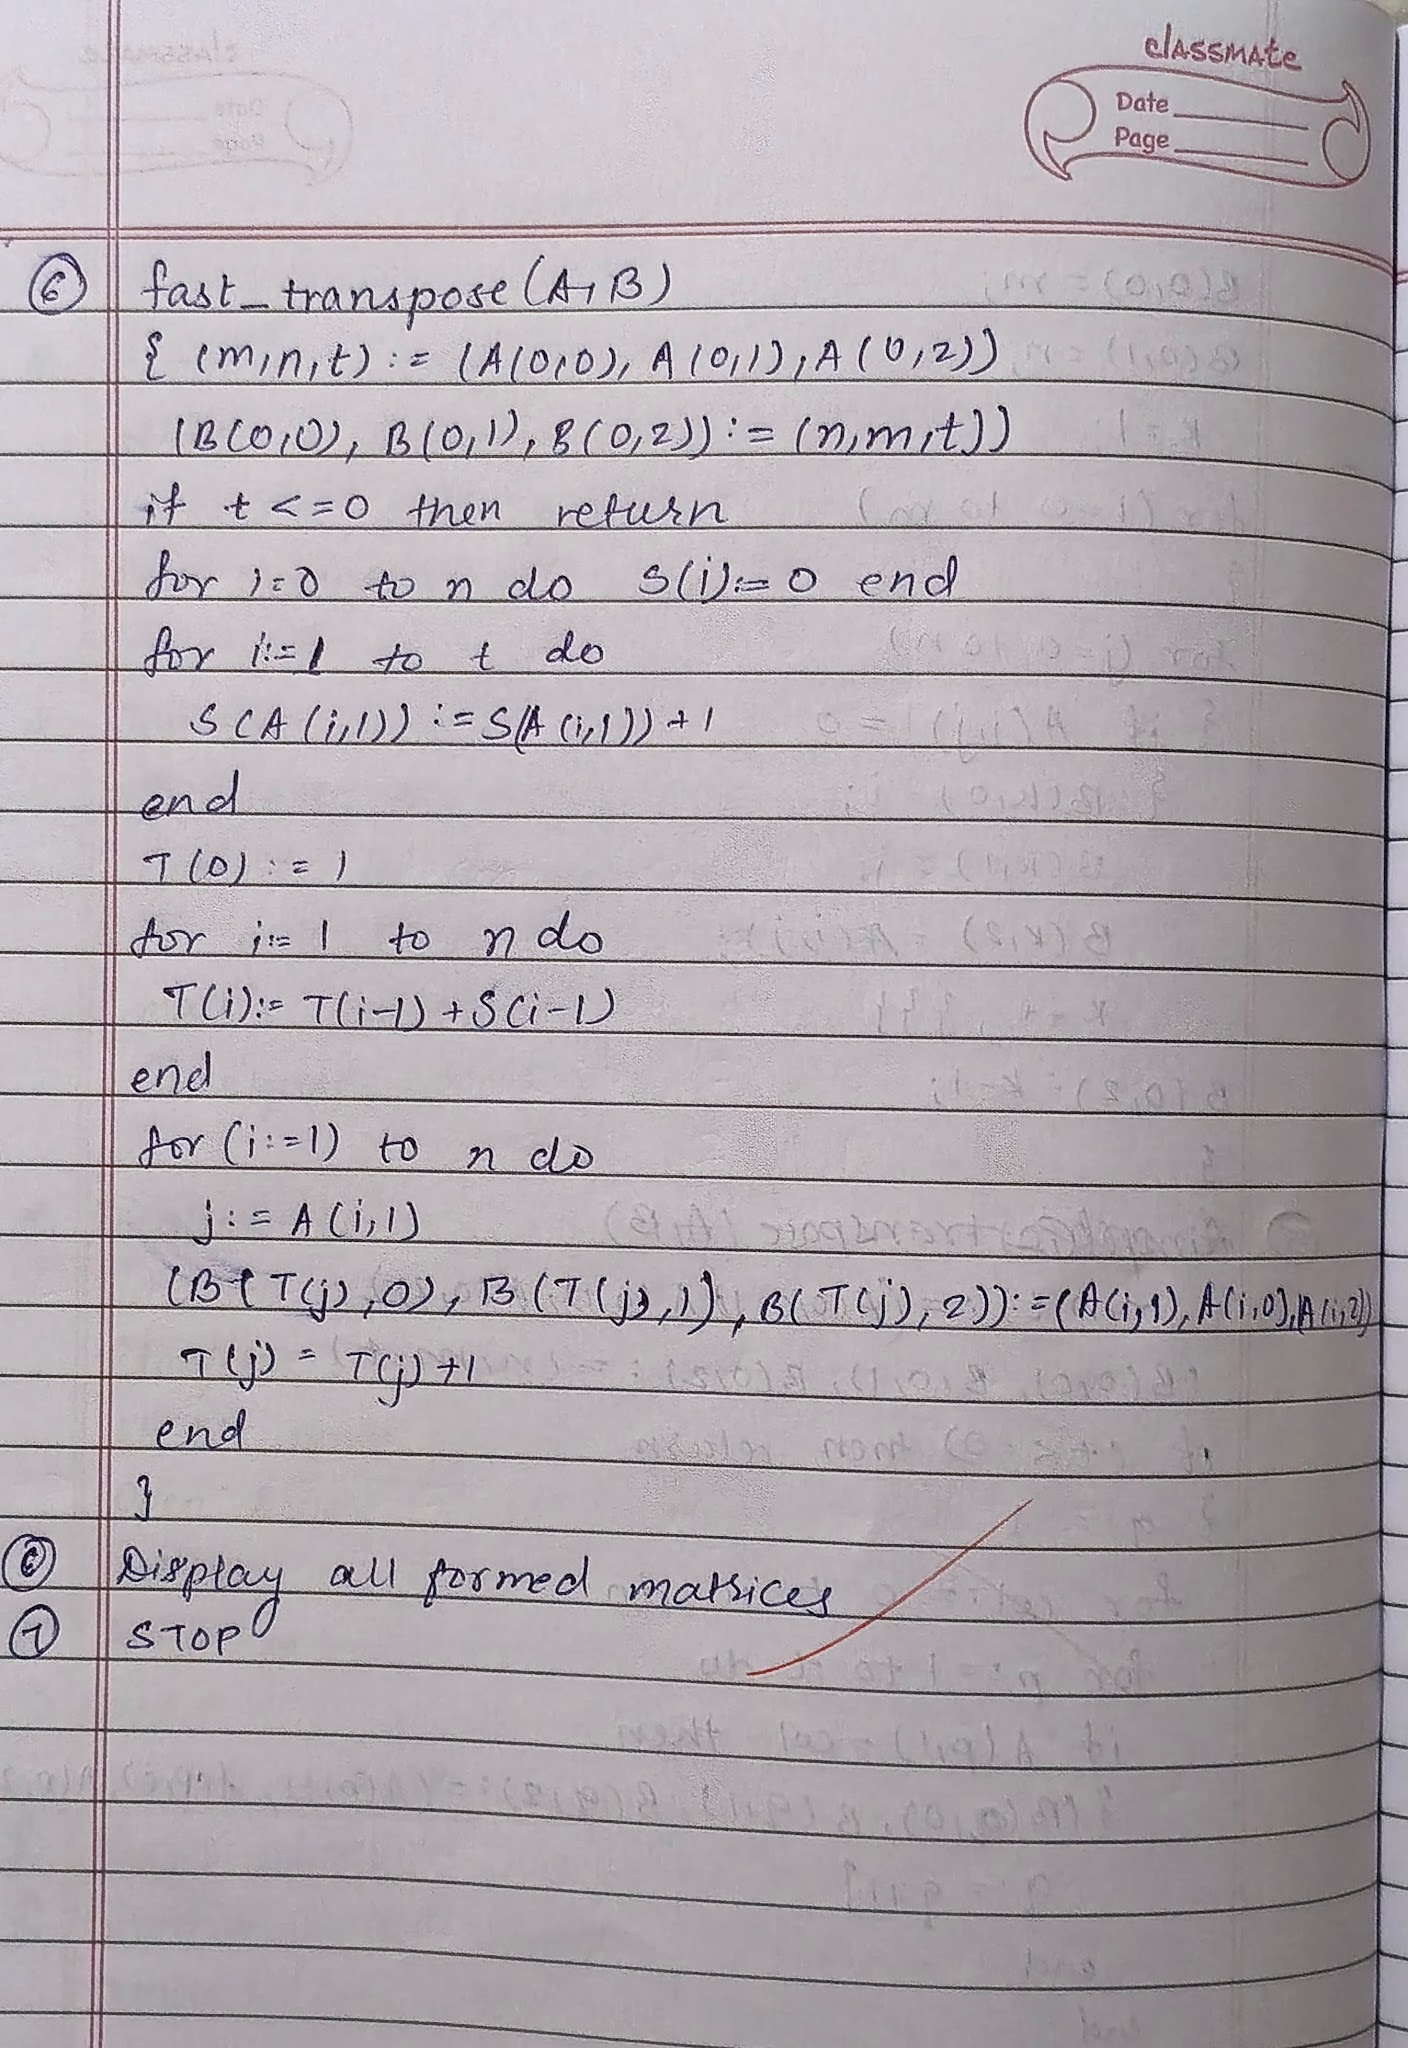 classmate
Date
Page
⑥ fast_transpose (A, B)
{ (m,n,t) := (A(0,0), A(0,1), A(0,2))
(B(0,0), B(0,1), B(0,2)) := (n,m,t))
if t <= 0 then return
for i=0 to n do S(i):=0 end
for i:=1 to t do
S(A(i,1)) := S(A(i,1)) + 1
end
T(0) := 1
for i:= 1 to n do
T(i):= T(i-1) + S(i-1)
end
for (i:=1) to n do
j := A(i,1)
(B(T(j),0), B(T(j),1), B(T(j),2)) := (A(i,1), A(i,0), A(i,2))
T(j) = T(j) +1
end
}
⑥ Display all formed matrices
⑦ STOP